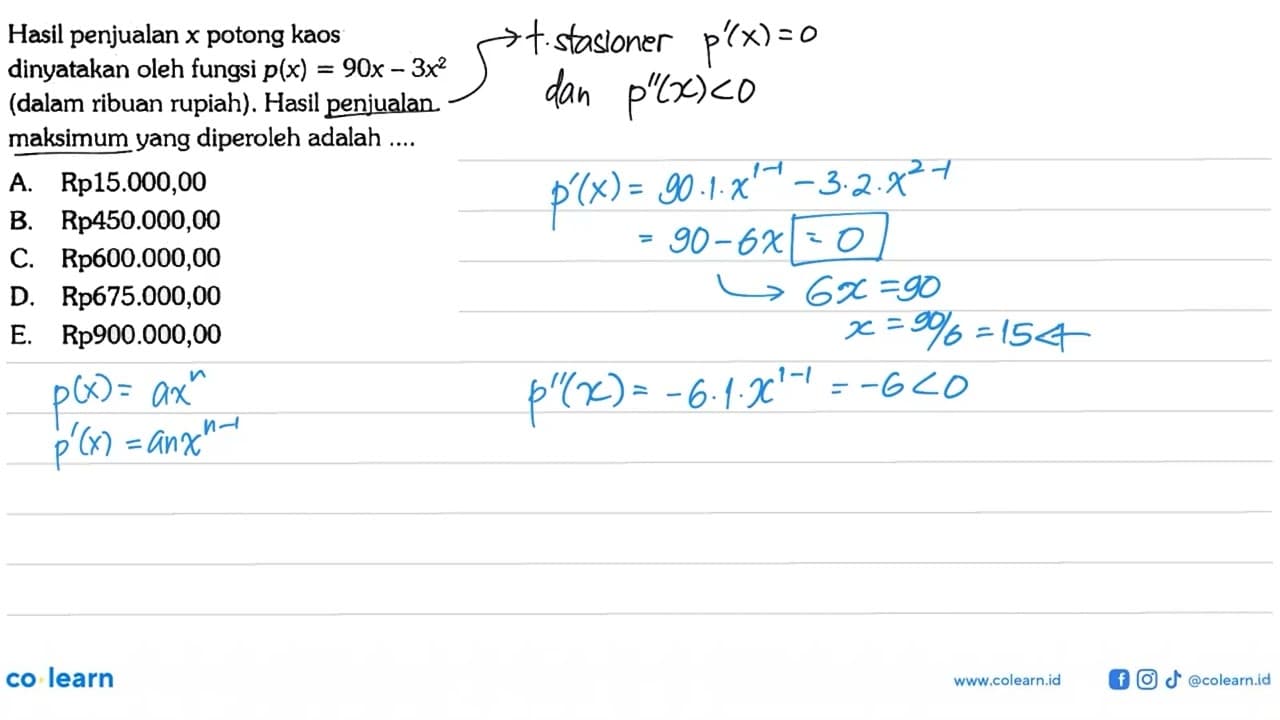 Hasil penjualan x potong kaos
dinyatakan oleh fungsi p(x) = 90x – 3x²
(dalam ribuan rupiah). Hasil penjualan
maksimum yang diperoleh adalah ....
A. Rp15.000,00
B. Rp450.000,00
C. Rp600.000,00
D. Rp675.000,00
E. Rp900.000,00
→ t. stasioner p'(x) = 0
dan p''(x) < 0
p'(x) = 90.1.x¹⁻¹ – 3.2.x²⁻¹
= 90 – 6x = 0
→ 6x = 90
x = 90/6 = 15
p(x) = axⁿ
p'(x) = anxⁿ⁻¹
p''(x) = -6.1.x¹⁻¹ = -6 < 0
co learn
www.colearn.id
@colearn.id